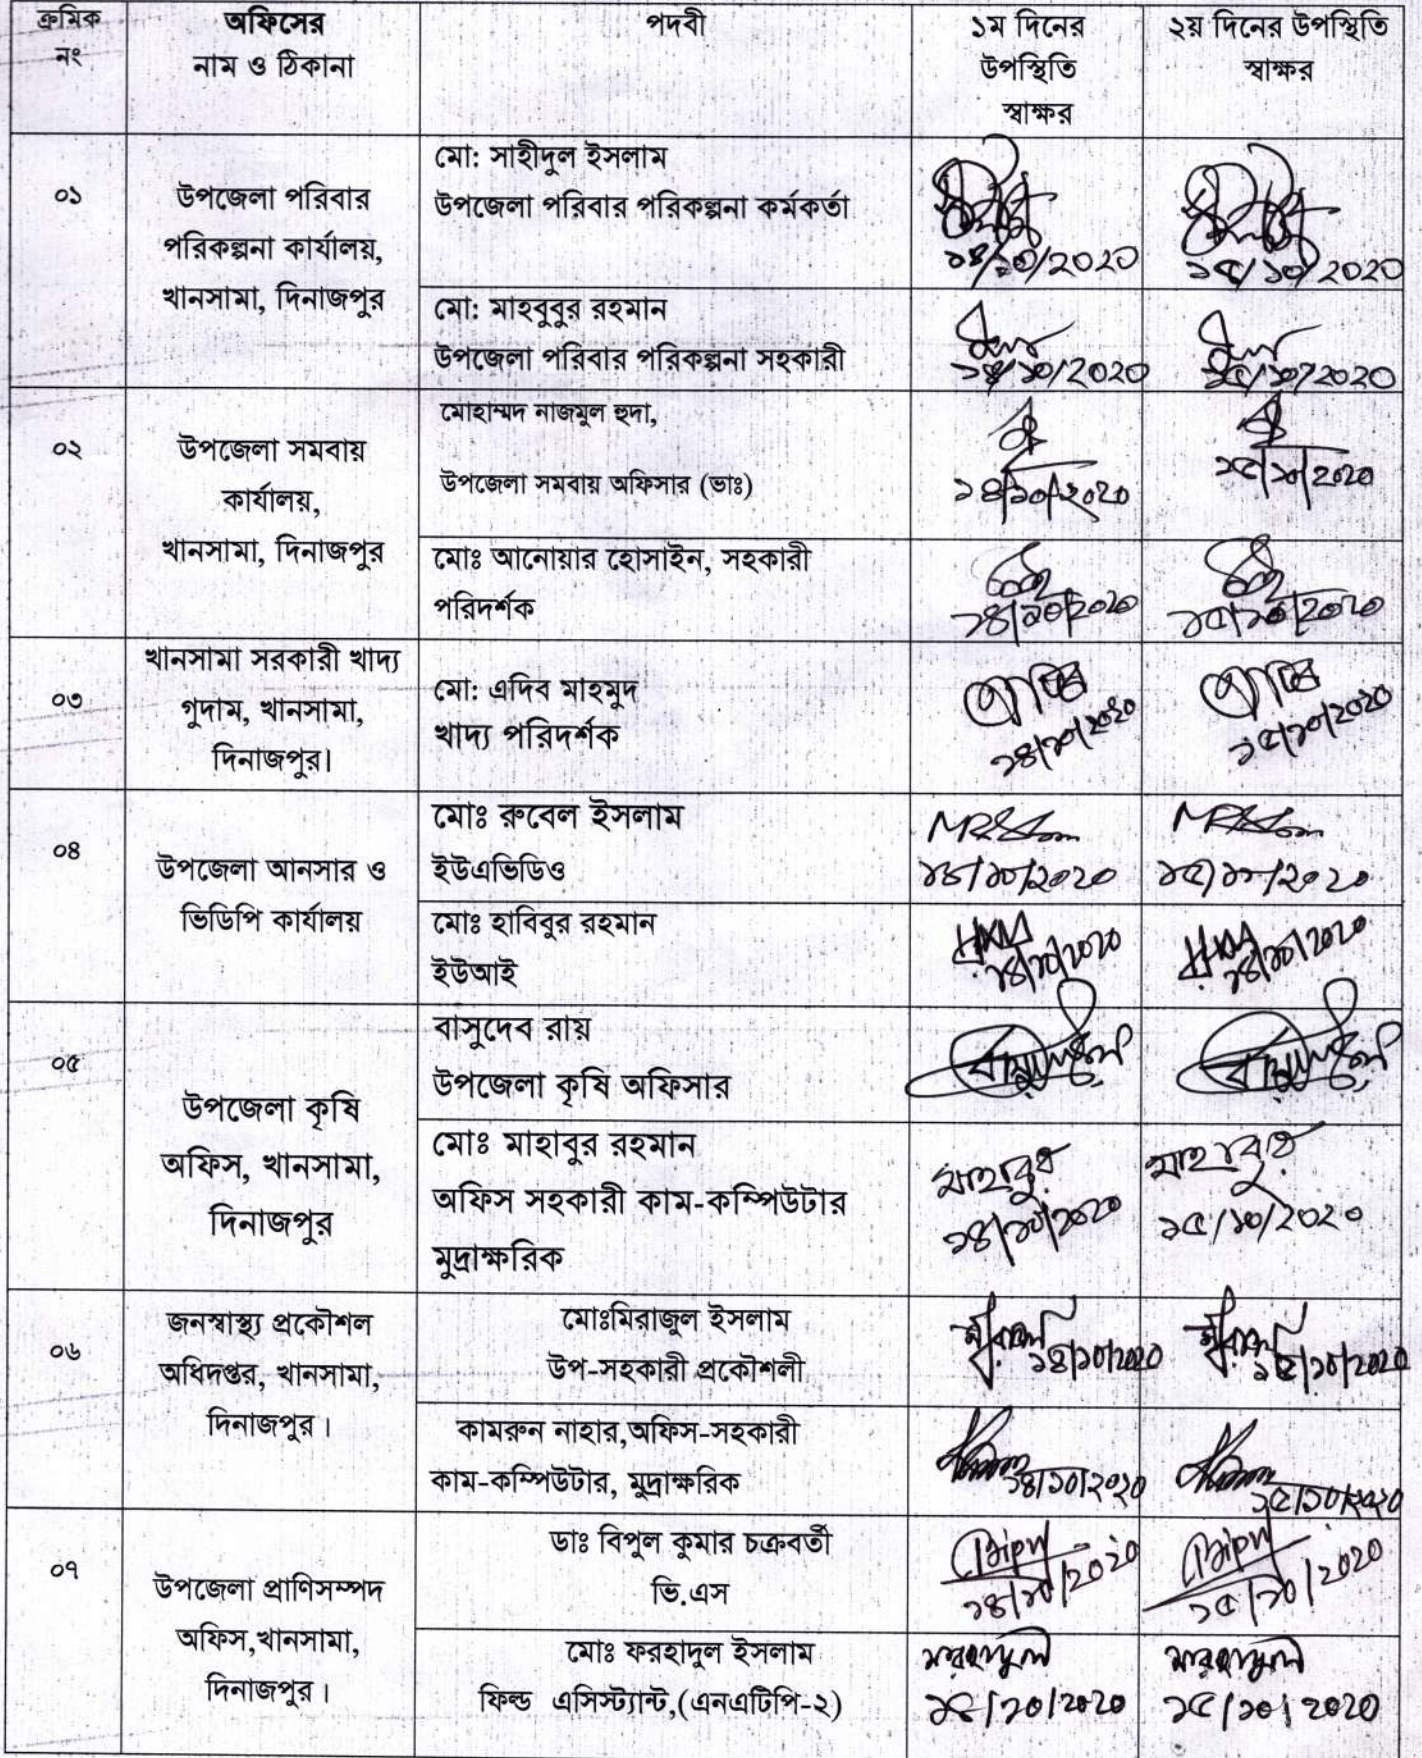 ক্রমিক
নং
অফিসের
নাম ও ঠিকানা
পদবী
১ম দিনের
উপস্থিতি
স্বাক্ষর
২য় দিনের উপস্থিতি
স্বাক্ষর
০১
উপজেলা পরিবার
পরিকল্পনা কার্যালয়,
খানসামা, দিনাজপুর
মো: সাহীদুল ইসলাম
উপজেলা পরিবার পরিকল্পনা কর্মকর্তা
১৪/১০/২০২০
১৫/১০/২০২০
মো: মাহবুবুর রহমান
উপজেলা পরিবার পরিকল্পনা সহকারী
১৪/১০/২০২০
১৫/১০/২০২০
০২
উপজেলা সমবায়
কার্যালয়,
খানসামা, দিনাজপুর
মোহাম্মদ নাজমুল হুদা,
উপজেলা সমবায় অফিসার (ভাঃ)
১৪/১০/২০২০
১৫/১০/২০২০
মোঃ আনোয়ার হোসাইন, সহকারী
পরিদর্শক
১৪/১০/২০২০
১৫/১০/২০২০
০৩
খানসামা সরকারী খাদ্য
গুদাম, খানসামা,
দিনাজপুর।
মো: এদিব মাহমুদ
খাদ্য পরিদর্শক
১৪/১০/২০২০
১৫/১০/২০২০
০৪
উপজেলা আনসার ও
ভিডিপি কার্যালয়
মোঃ রুবেল ইসলাম
ইউএভিডিও
১৪/১০/২০২০
১৫/১০/২০২০
মোঃ হাবিবুর রহমান
ইউআই
১৪/১০/২০২০
১৪/১০/২০২০
০৫
উপজেলা কৃষি
অফিস, খানসামা,
দিনাজপুর
বাসুদেব রায়
উপজেলা কৃষি অফিসার
মোঃ মাহাবুর রহমান
অফিস সহকারী কাম-কম্পিউটার
মুদ্রাক্ষরিক
মাহাবুর
১৪/১০/২০২০
মাহাবুর
১৫/১০/২০২০
০৬
জনস্বাস্থ্য প্রকৌশল
অধিদপ্তর, খানসামা,
দিনাজপুর।
মোঃমিরাজুল ইসলাম
উপ-সহকারী প্রকৌশলী
১৪/১০/২০২০
১৫/১০/২০২০
কামরুন নাহার,অফিস-সহকারী
কাম-কম্পিউটার, মুদ্রাক্ষরিক
১৪/১০/২০২০
১৫/১০/২০২০
০৭
উপজেলা প্রাণিসম্পদ
অফিস,খানসামা,
দিনাজপুর।
ডাঃ বিপুল কুমার চক্রবর্তী
ভি.এস
১৪/১০/২০২০
১৫/১০/২০২০
মোঃ ফরহাদুল ইসলাম
ফিল্ড এসিস্ট্যান্ট,(এনএটিপি-২)
১৪/১০/২০২০
১৫/১০/২০২০